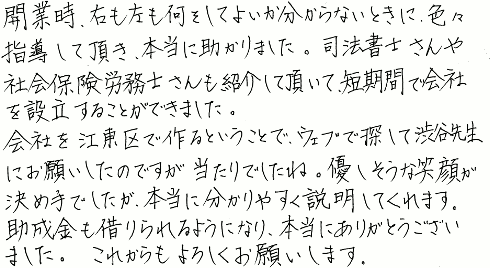 開業時、右も左も何をしてよいか分からないときに、色々
指導して頂き、本当に助かりました。司法書士さんや
社会保険労務士さんも紹介して頂いて、短期間で会社
を設立することができました。
会社を江東区で作るということで、ウェブで探して渋谷先生
にお願いしたのですが当たりでしたね。優しそうな笑顔が
決め手でしたが、本当に分かりやすく説明してくれます。
助成金も借りられるようになり、本当にありがとうござい
ました。 これからもよろしくお願いします。